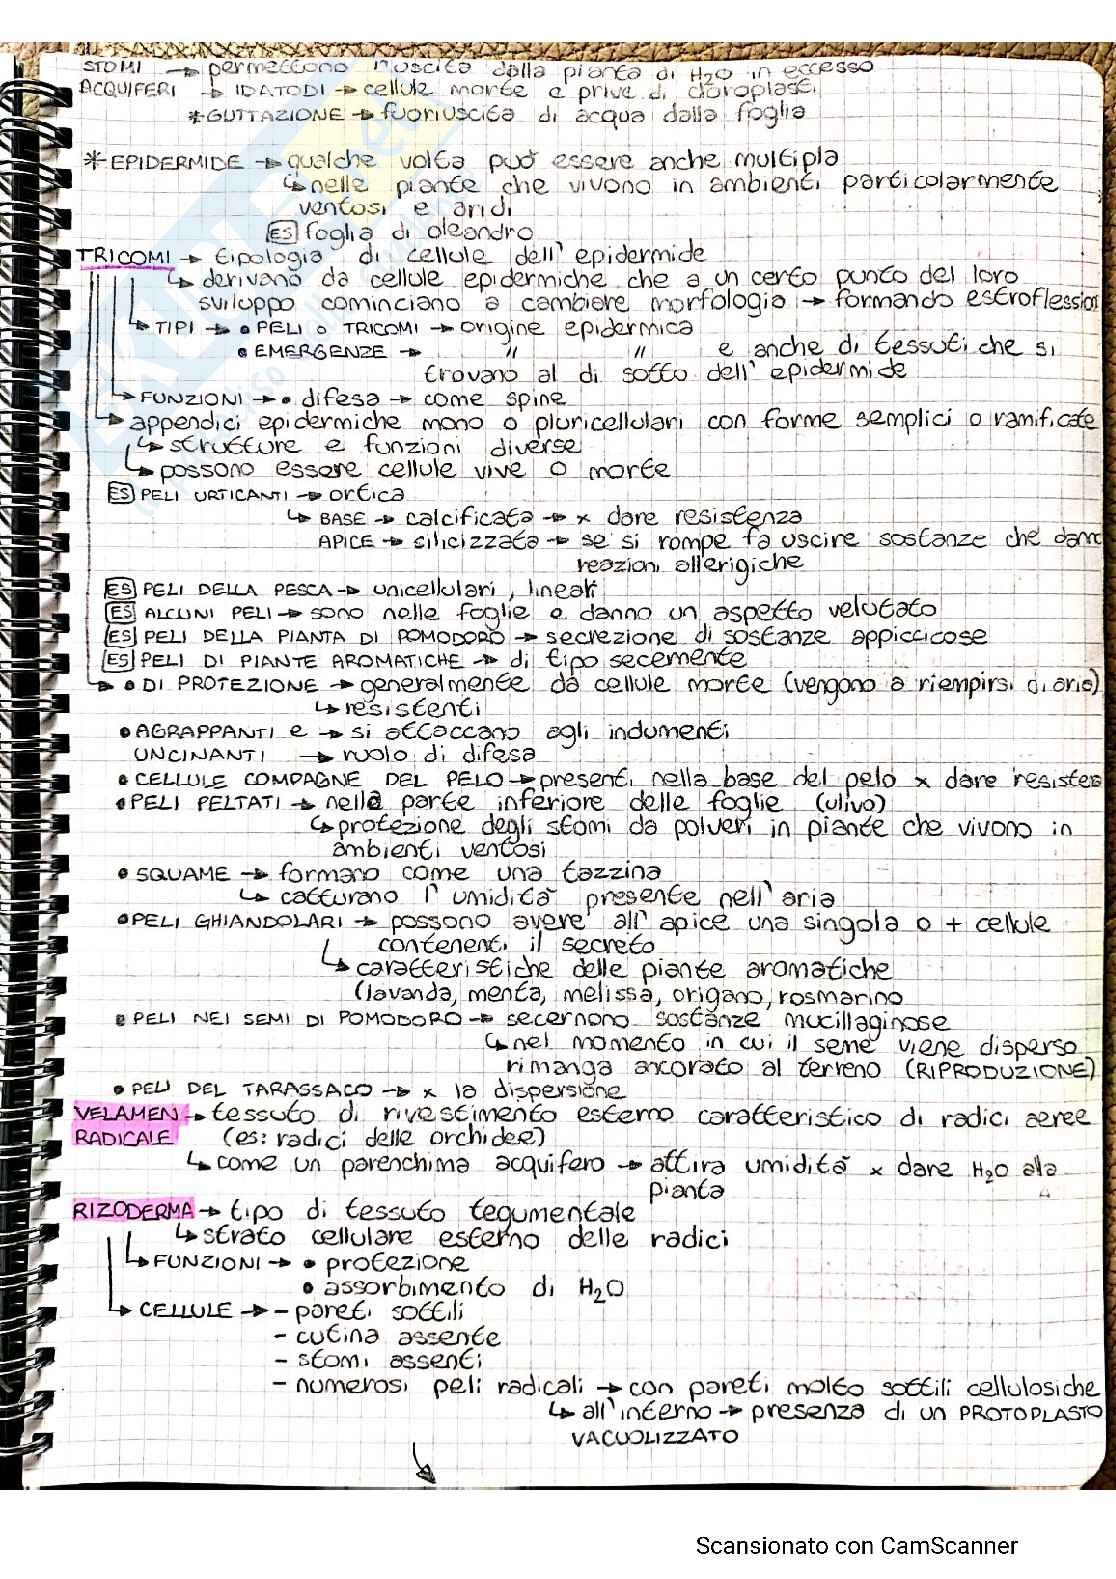 STOMI → permettono l'uscita dalla pianta di H2O in eccesso
ACQUIFERI → IDATODI → cellule morte e prive di cloroplasti
*GUTTAZIONE → fuoriuscita di acqua dalla foglia
* EPIDERMIDE → qualche volta può essere anche multipla
↳ nelle piante che vivono in ambienti particolarmente
ventosi e aridi
ES foglia di oleandro
TRICOMI → tipologia di cellule dell'epidermide
↳ derivano da cellule epidermiche che a un certo punto del loro
sviluppo cominciano a cambiare morfologia → formando estroflession
↳ TIPI → • PELI o TRICOMI → origine epidermica
• EMERGENZE → " " e anche di tessuti che si
trovano al di sotto dell'epidermide
↳ FUNZIONI → • difesa → come spine
↳ appendici epidermiche mono o pluricellulari con forme semplici o ramificate
↳ strutture e funzioni diverse
↳ possono essere cellule vive o morte
ES PELI URTICANTI → ortica
↳ BASE → calcificata → x dare resistenza
APICE → silicizzata → se si rompe fa uscire sostanze che danno
reazioni allerigiche
ES PELI DELLA PESCA → unicellulari, lineari
ES ALCUNI PELI → sono nelle foglie e danno un aspetto velutato
ES PELI DELLA PIANTA DI POMODORO → secrezione di sostanze appiccicose
ES PELI DI PIANTE AROMATICHE → di tipo secernente
↳ • DI PROTEZIONE → generalmente da cellule morte (vengono a riempirsi di aria)
↳ resistenti
• AGRAPPANTI e → si attaccano agli indumenti
UNCINANTI → ruolo di difesa
• CELLULE COMPAGNE DEL PELO → presenti nella base del pelo x dare resisten
• PELI PELTATI → nella parte inferiore delle foglie (ulivo)
↳ protezione degli stomi da polveri in piante che vivono in
ambienti ventosi
• SQUAME → formano come una tazzina
↳ catturano l'umidità presente nell'aria
• PELI GHIANDOLARI → possono avere all'apice una singola o + cellule
contenenti il secreto
↳ caratteristiche delle piante aromatiche
(lavanda, menta, melissa, origano, rosmarino
• PELI NEI SEMI DI POMODORO → secernono sostanze mucillaginose
↳ nel momento in cui il seme viene disperso
rimanga ancorato al terreno (RIPRODUZIONE)
• PELI DEL TARASSACO → x la dispersione
VELAMEN → tessuto di rivestimento esterno caratteristico di radici aeree
RADICALE (es: radici delle orchidee)
↳ come un parenchima acquifero → attira umidità x dare H2O alla
pianta
RIZODERMA → tipo di tessuto tegumentale
↳ strato cellulare esterno delle radici
↳ FUNZIONI → • protezione
• assorbimento di H2O
↳ CELLULE → - pareti sottili
- cutina assente
- stomi assenti
- numerosi peli radicali → con pareti molto sottili cellulosiche
↳ all'interno → presenza di un PROTOPLASTO
VACUOLIZZATO
Scansionato con CamScanner